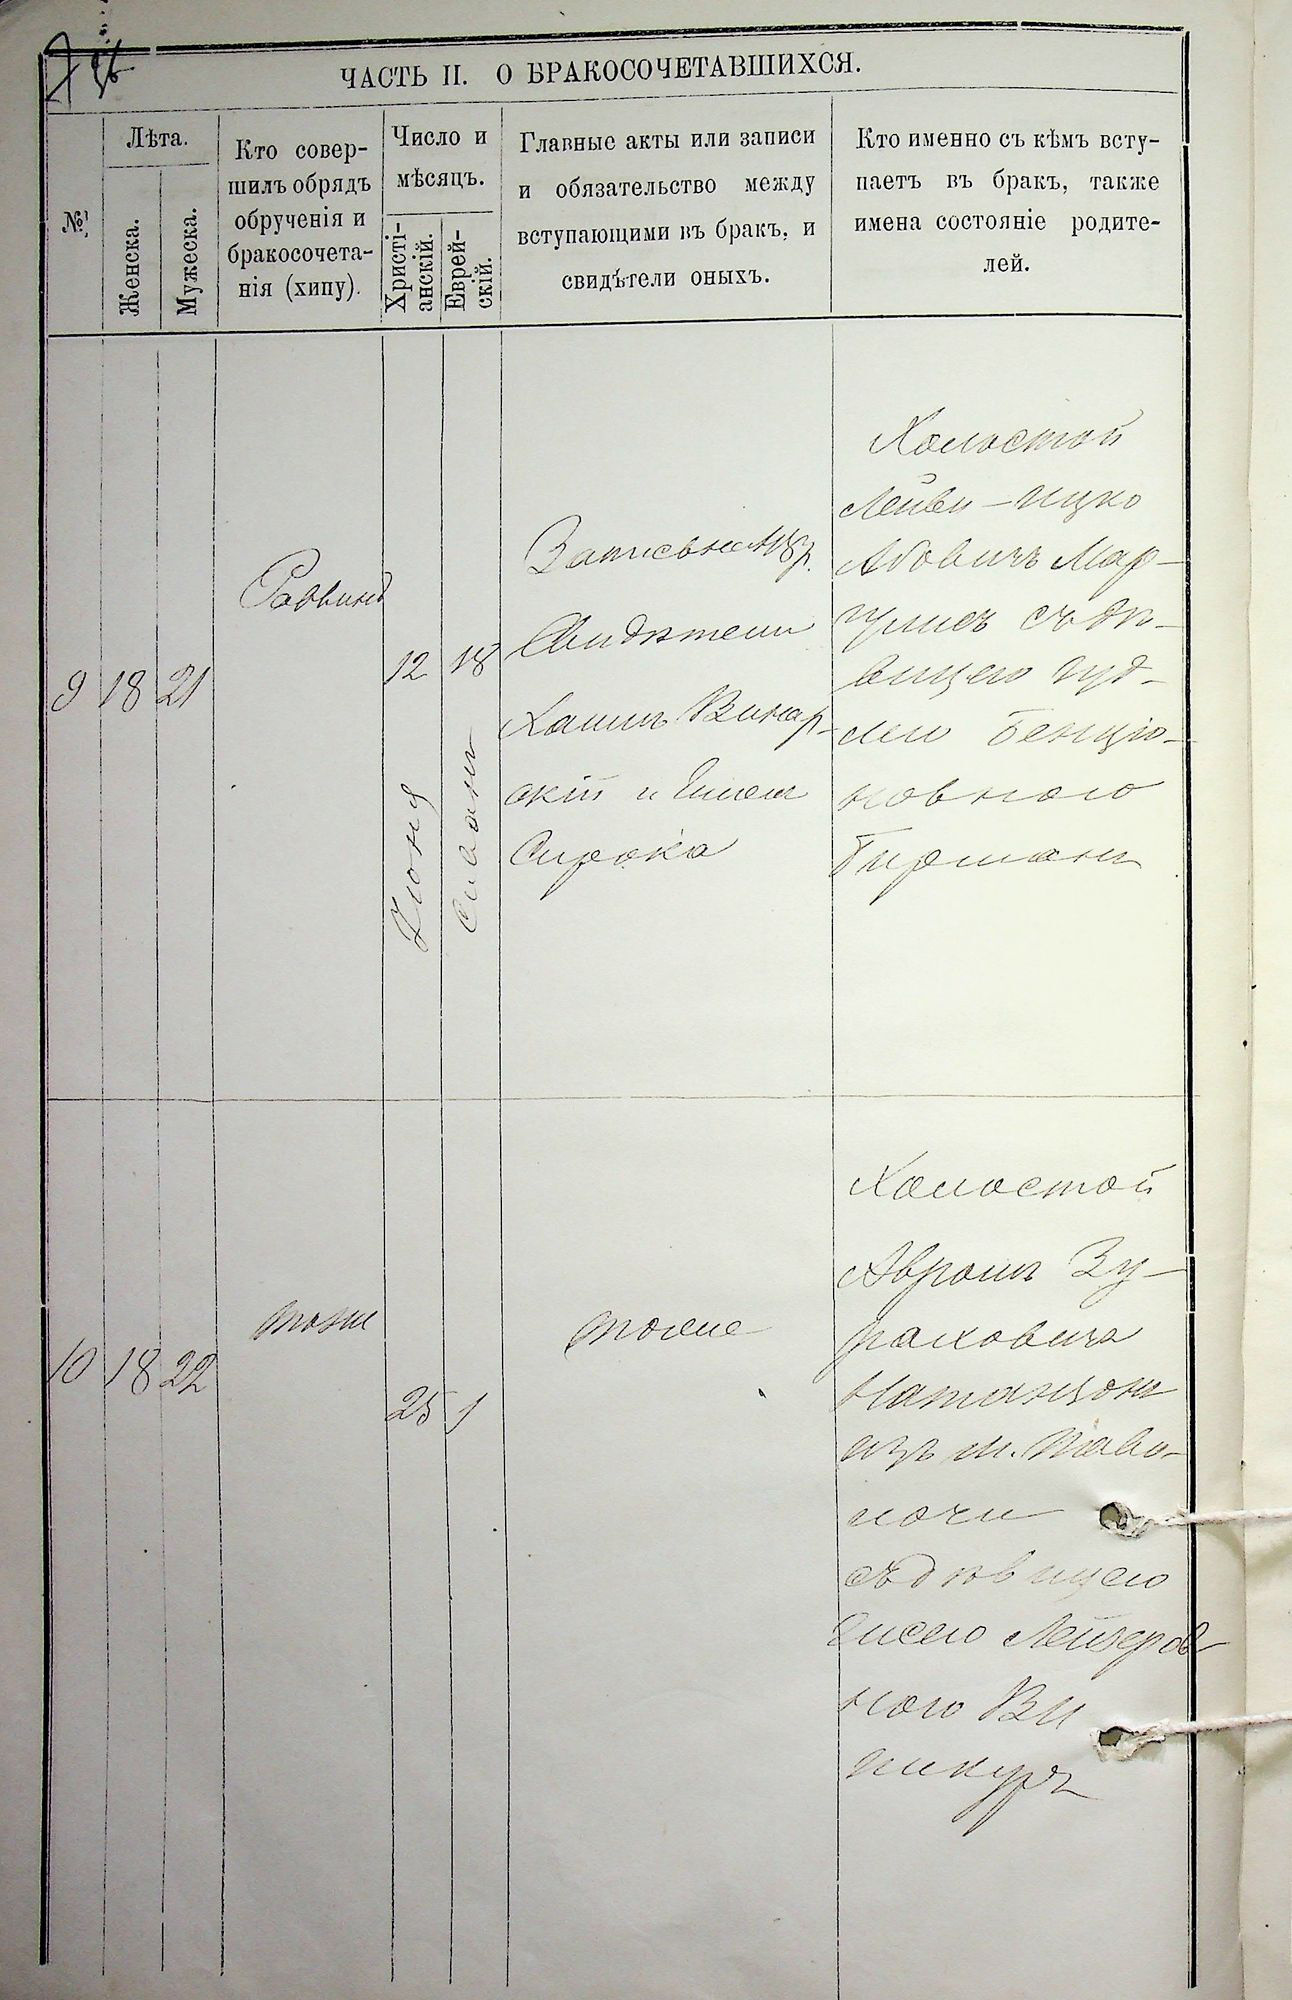 56
ЧАСТЬ II. О БРАКОСОЧЕТАВШИХСЯ.
№
Лѣта.
Женска.
Мужеска.
Кто совер-
шилъ обрядъ
обрученія и
бракосочета-
нія (хипу).
Число и
мѣсяцъ.
Христі-
анскій.
Еврей-
скій.
Главные акты или записи
и обязательство между
вступающими въ бракъ, и
свидѣтели оныхъ.
Кто именно съ кѣмъ всту-
паетъ въ бракъ, также
имена состояніе родите-
лей.
9
18
21
Раввинъ
12
Іюня
18
Сивонъ
Запись на 48 р.
Свидѣтели
Хаимъ Винар-
скій и
Сирока
Холостой
Лейви-Ицко
Абовичъ Мар-
гулисъ съ дѣ-
вицею Гуд-
лею Бенціо-
новною
Гирманъ
10
18
22
тоже
25
1
тоже
Холостой
Авромъ Зу-
раховичъ
Натанцонъ
изъ м. Паво-
лочи
съ дѣвицею
Лейзеров-
ною Ви
никуръ